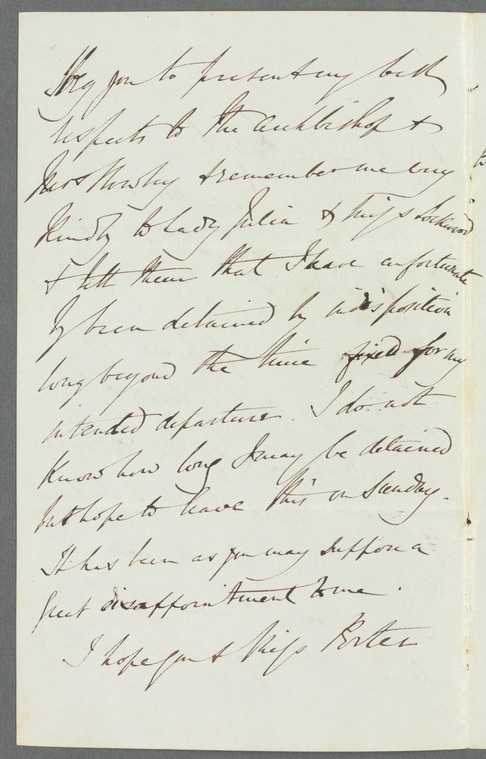 I beg you to present my best
respects to the Archbishop &
Mrs Howley & remember me very
kindly to Lady Julia & Miss Lockwood
& tell them that I have unfortunate
ly been detained by indisposition
long beyond the time fixed for my
intended departure. I do not
know how long I may be detained
but hope to leave this on Sunday.
It has been as you may suppose a
great disappointment to me.
I hope you & Miss Porter